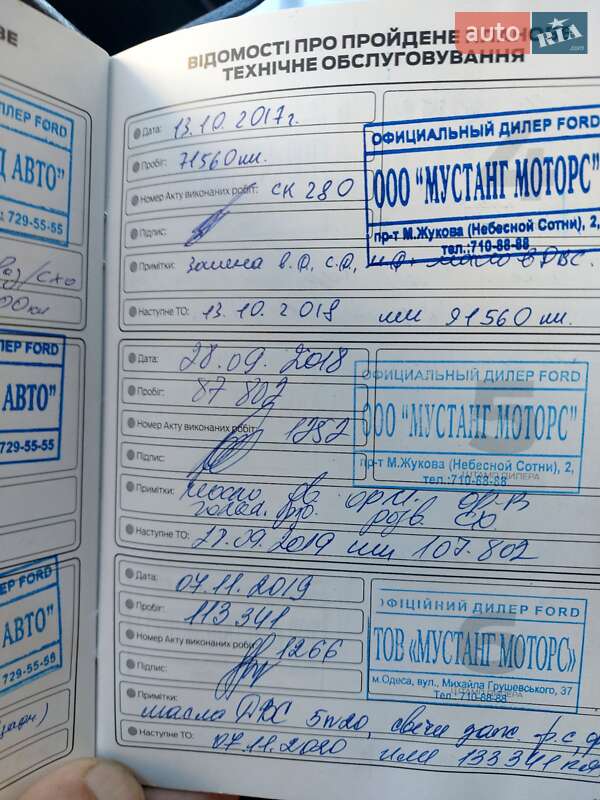 auto RIA .com
ВЕ
ВІДОМОСТІ ПРО ПРОЙДЕНЕ
ТЕХНІЧНЕ ОБСЛУГОВУВАННЯ
ЛЕР FORD
АВТО"
729-55-55
Дата: 13.10.2017г.
Пробіг: 71560 км.
Номер Акту виконаних робіт: СК 280
Підпис:
Примітки: Замена в.ф, с.ф, ДВС.
Наступне ТО: 13.10.2018 или 91560 км.
ОФИЦИАЛЬНЫЙ ДИЛЕР FORD
ООО "МУСТАНГ МОТОРС"
пр-т М.Жукова (Небесной Сотни), 2,
тел.:710-88-88
ЛЕР FORD
АВТО"
729-55-55
Дата: 28.09.2018
Пробіг: 87 802
Номер Акту виконаних робіт: 1252
Підпис:
Примітки: Масло
Наступне ТО: 27.09.2019 или 107.802
5
ОФИЦИАЛЬНЫЙ ДИЛЕР FORD
ООО "МУСТАНГ МОТОРС"
пр-т М.Жукова (Небесной Сотни), 2,
ШТАМП ДИЛЕРА
тел.:710-88-88
ЕР FORD
АВТО"
729-55-55
Дата: 07.11.2019
Пробіг: 113 341
Номер Акту виконаних робіт: 1266
Підпис:
Примітки: масла ДВС 5w20, свечи заж.
Наступне ТО: 07.11.2020 или 133341 км
6
ОФІЦІЙНИЙ ДИЛЕР FORD
ТОВ «МУСТАНГ МОТОРС»
м.Одеса, вул. Михайла Грушевського, 37
ШТАМП ДИЛЕРА
Тел.:710-88-88